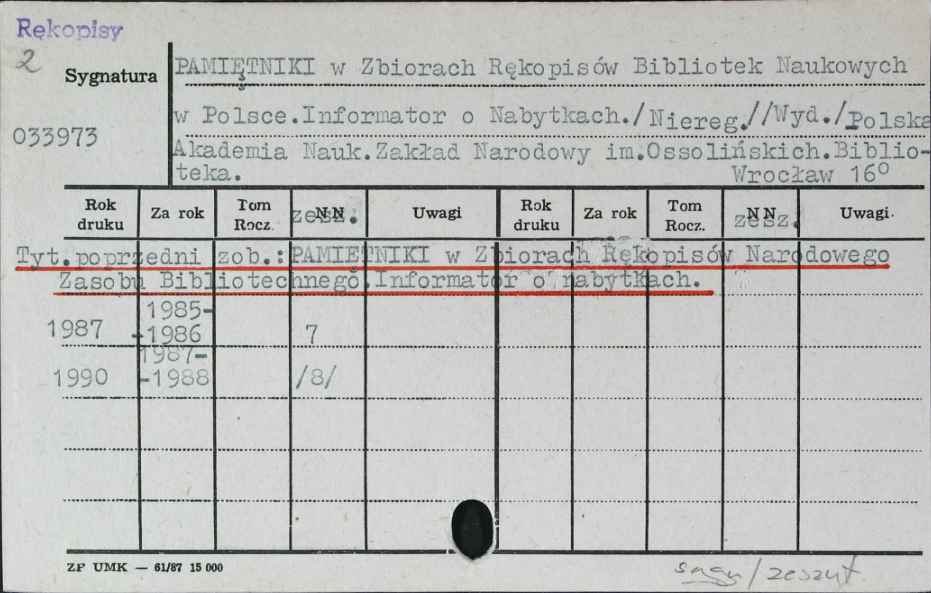 Rękopisy
2
Sygnatura
033973
PAMIĘTNIKI w Zbiorach Rękopisów Bibliotek Naukowych
w Polsce.Informator o Nabytkach./Niereg.//Wyd./Polska
Akademia Nauk.Zakład Narodowy im.Ossolińskich.Biblio-
teka. Wrocław 16°
Rok druku Za rok Tom Rocz. NN zesz. Uwagi Rok druku Za rok Tom Rocz. NN zesz. Uwagi
Tyt.poprzedni zob.:PAMIĘTNIKI w Zbiorach Rękopisów Narodowego
Zasobu Bibliotecznego.Informator o nabytkach.
1987 1985-
-1986 7
1990 1987-
-1988 /8/
ZP UMK — 61/87 15 000
/zeszyt.